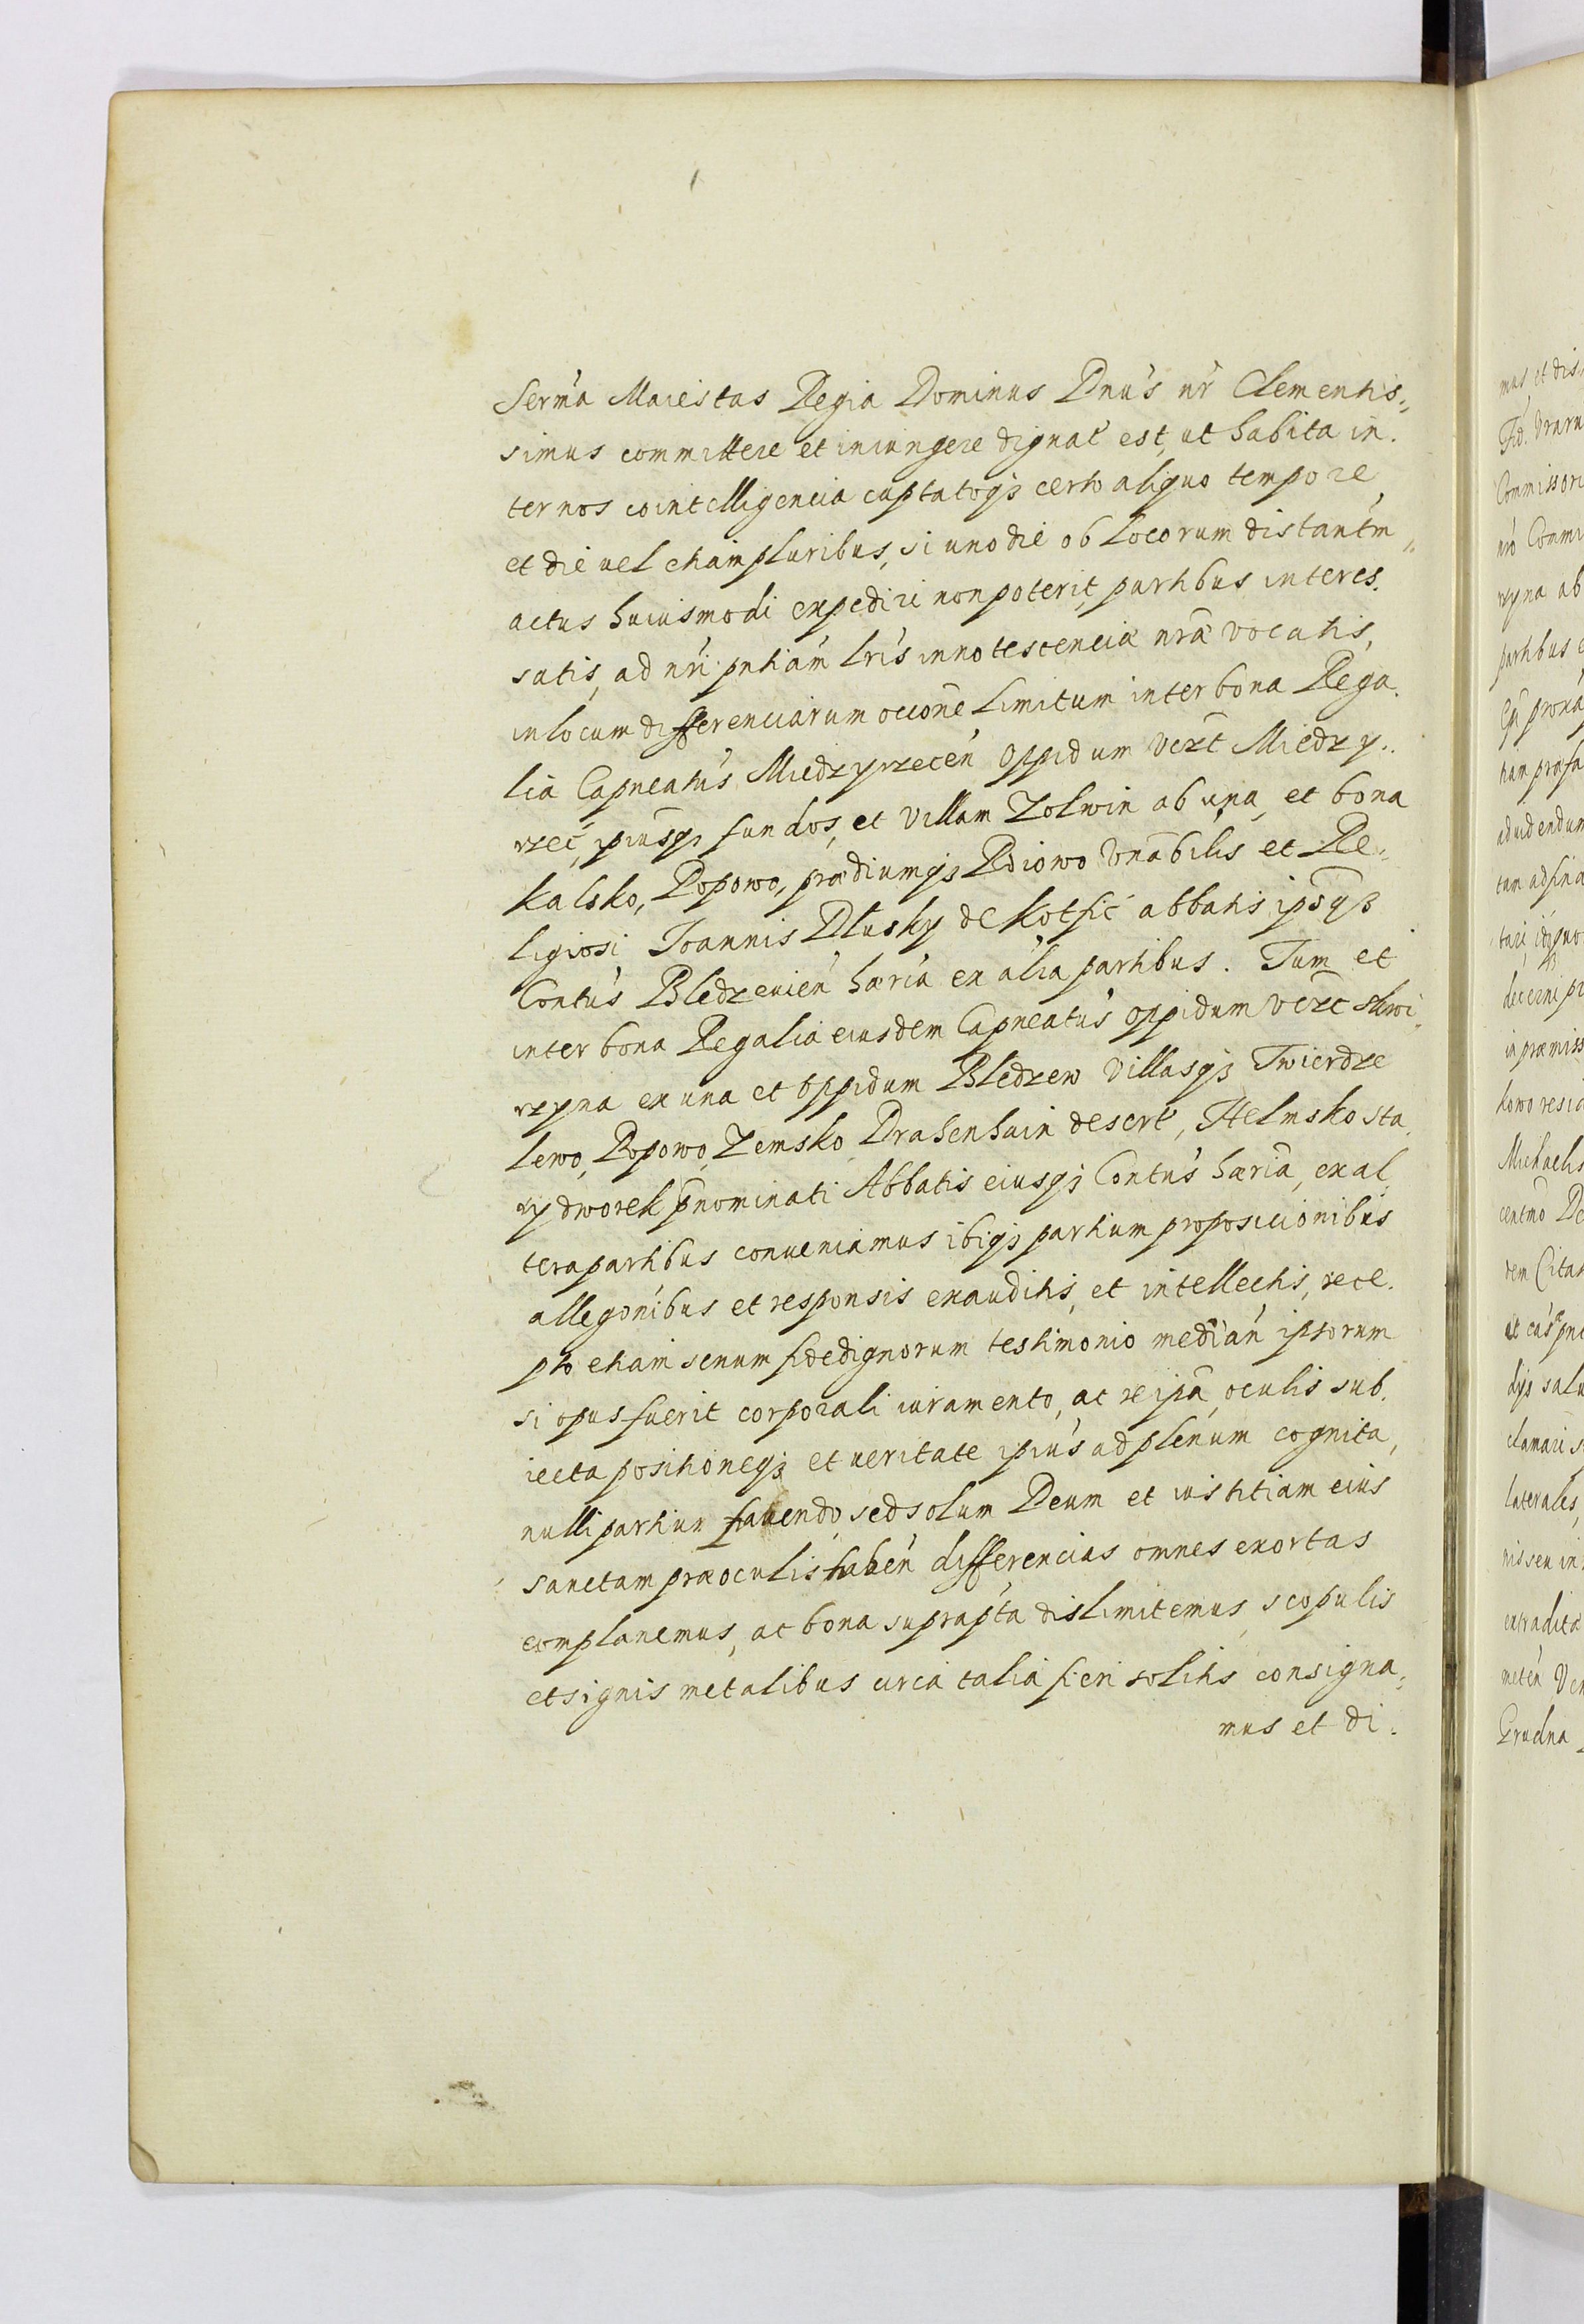 Serma Maiestas Regia Dominus Dnus nr Clementis=
simus committere et iniungere dignat est, ut habita in.
ter nos cointelligencia captatoqz certo aliquo tempore
et die uel etiam pluribus, si uno die ob locorum distantm
actus huiusmodi expediri non poterit, partibus interes.
satis, ad nri pntiam lris innotescenciæ nræ vocatis,
in locum differenciarum occone Limitum inter bona Rega.
lia Capneatus Miedzyrzecen Oppidum vert Miedzy..
rzec, ipiusqz fundos, et villam Zolwin ab una, et bona
Kalsko, Popowo, prædiumqz Rdiowo vnabilis et Re=
ligiosi Joannis Dłusky de abbatis
Contus Bledzeuien hæria ex alia partibus. Tum et
inter bona Regalia eiusdem Capneatus oppidum vert Skwi.
rzyna ex una et oppidum Bledzew villasqz Twierdze
lewo, Popowo, Zemsko Drahenhain desert, Helmsko sta
ry dworek pnominati Abbatis eiusqz Contus hæria, ex al
tera partibus conueniamus ibiqz partium proposicionibus
allegonibus et responsis exauditis, et intellectis, rece.
pto etiam senum fidedignorum testimonio median ipsorum
si opus fuerit corporali iuramento, ac re ipa, oculis sub.
iecta positioneqz et ueritate ipius ad plenum cognita,
nulli partium fauendo, sed solum Deum et iustitiam eius
sanctam præ oculis haben differencias omnes exortas
complanemus, ac bona suprapta dislimitemus, scopulis
et signis metalibus circa talia fieri solitis consigna=
mus et di.
mus et dis
Commissori
rzyna ab
partibus
ad uidendum
in præmiss
Michaelis
dem Citat
laterales,